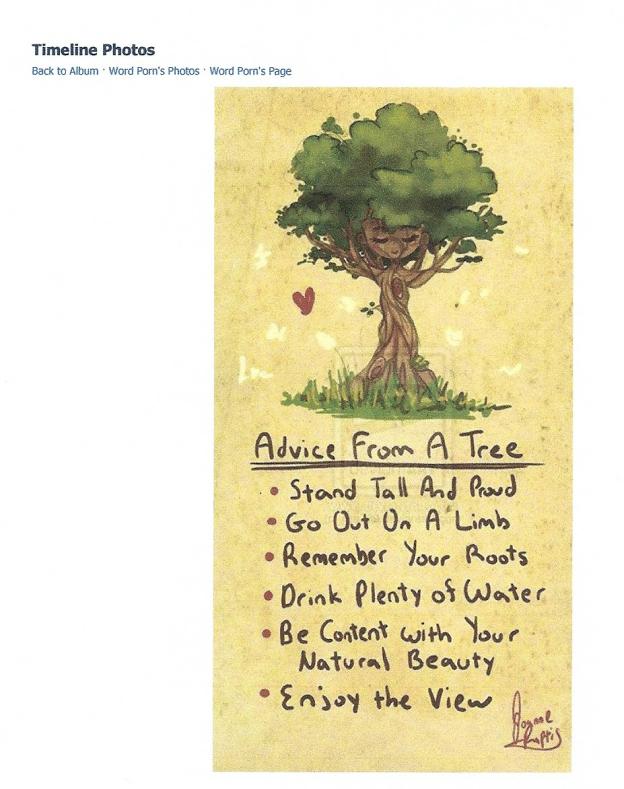 Timeline Photos
Back to Album · Word Porn's Photos · Word Porn's Page
Advice From A Tree
• Stand Tall And Proud
• Go Out On A Limb
• Remember Your Roots
• Drink Plenty of Water
• Be Content with Your
Natural Beauty
• Enjoy the View